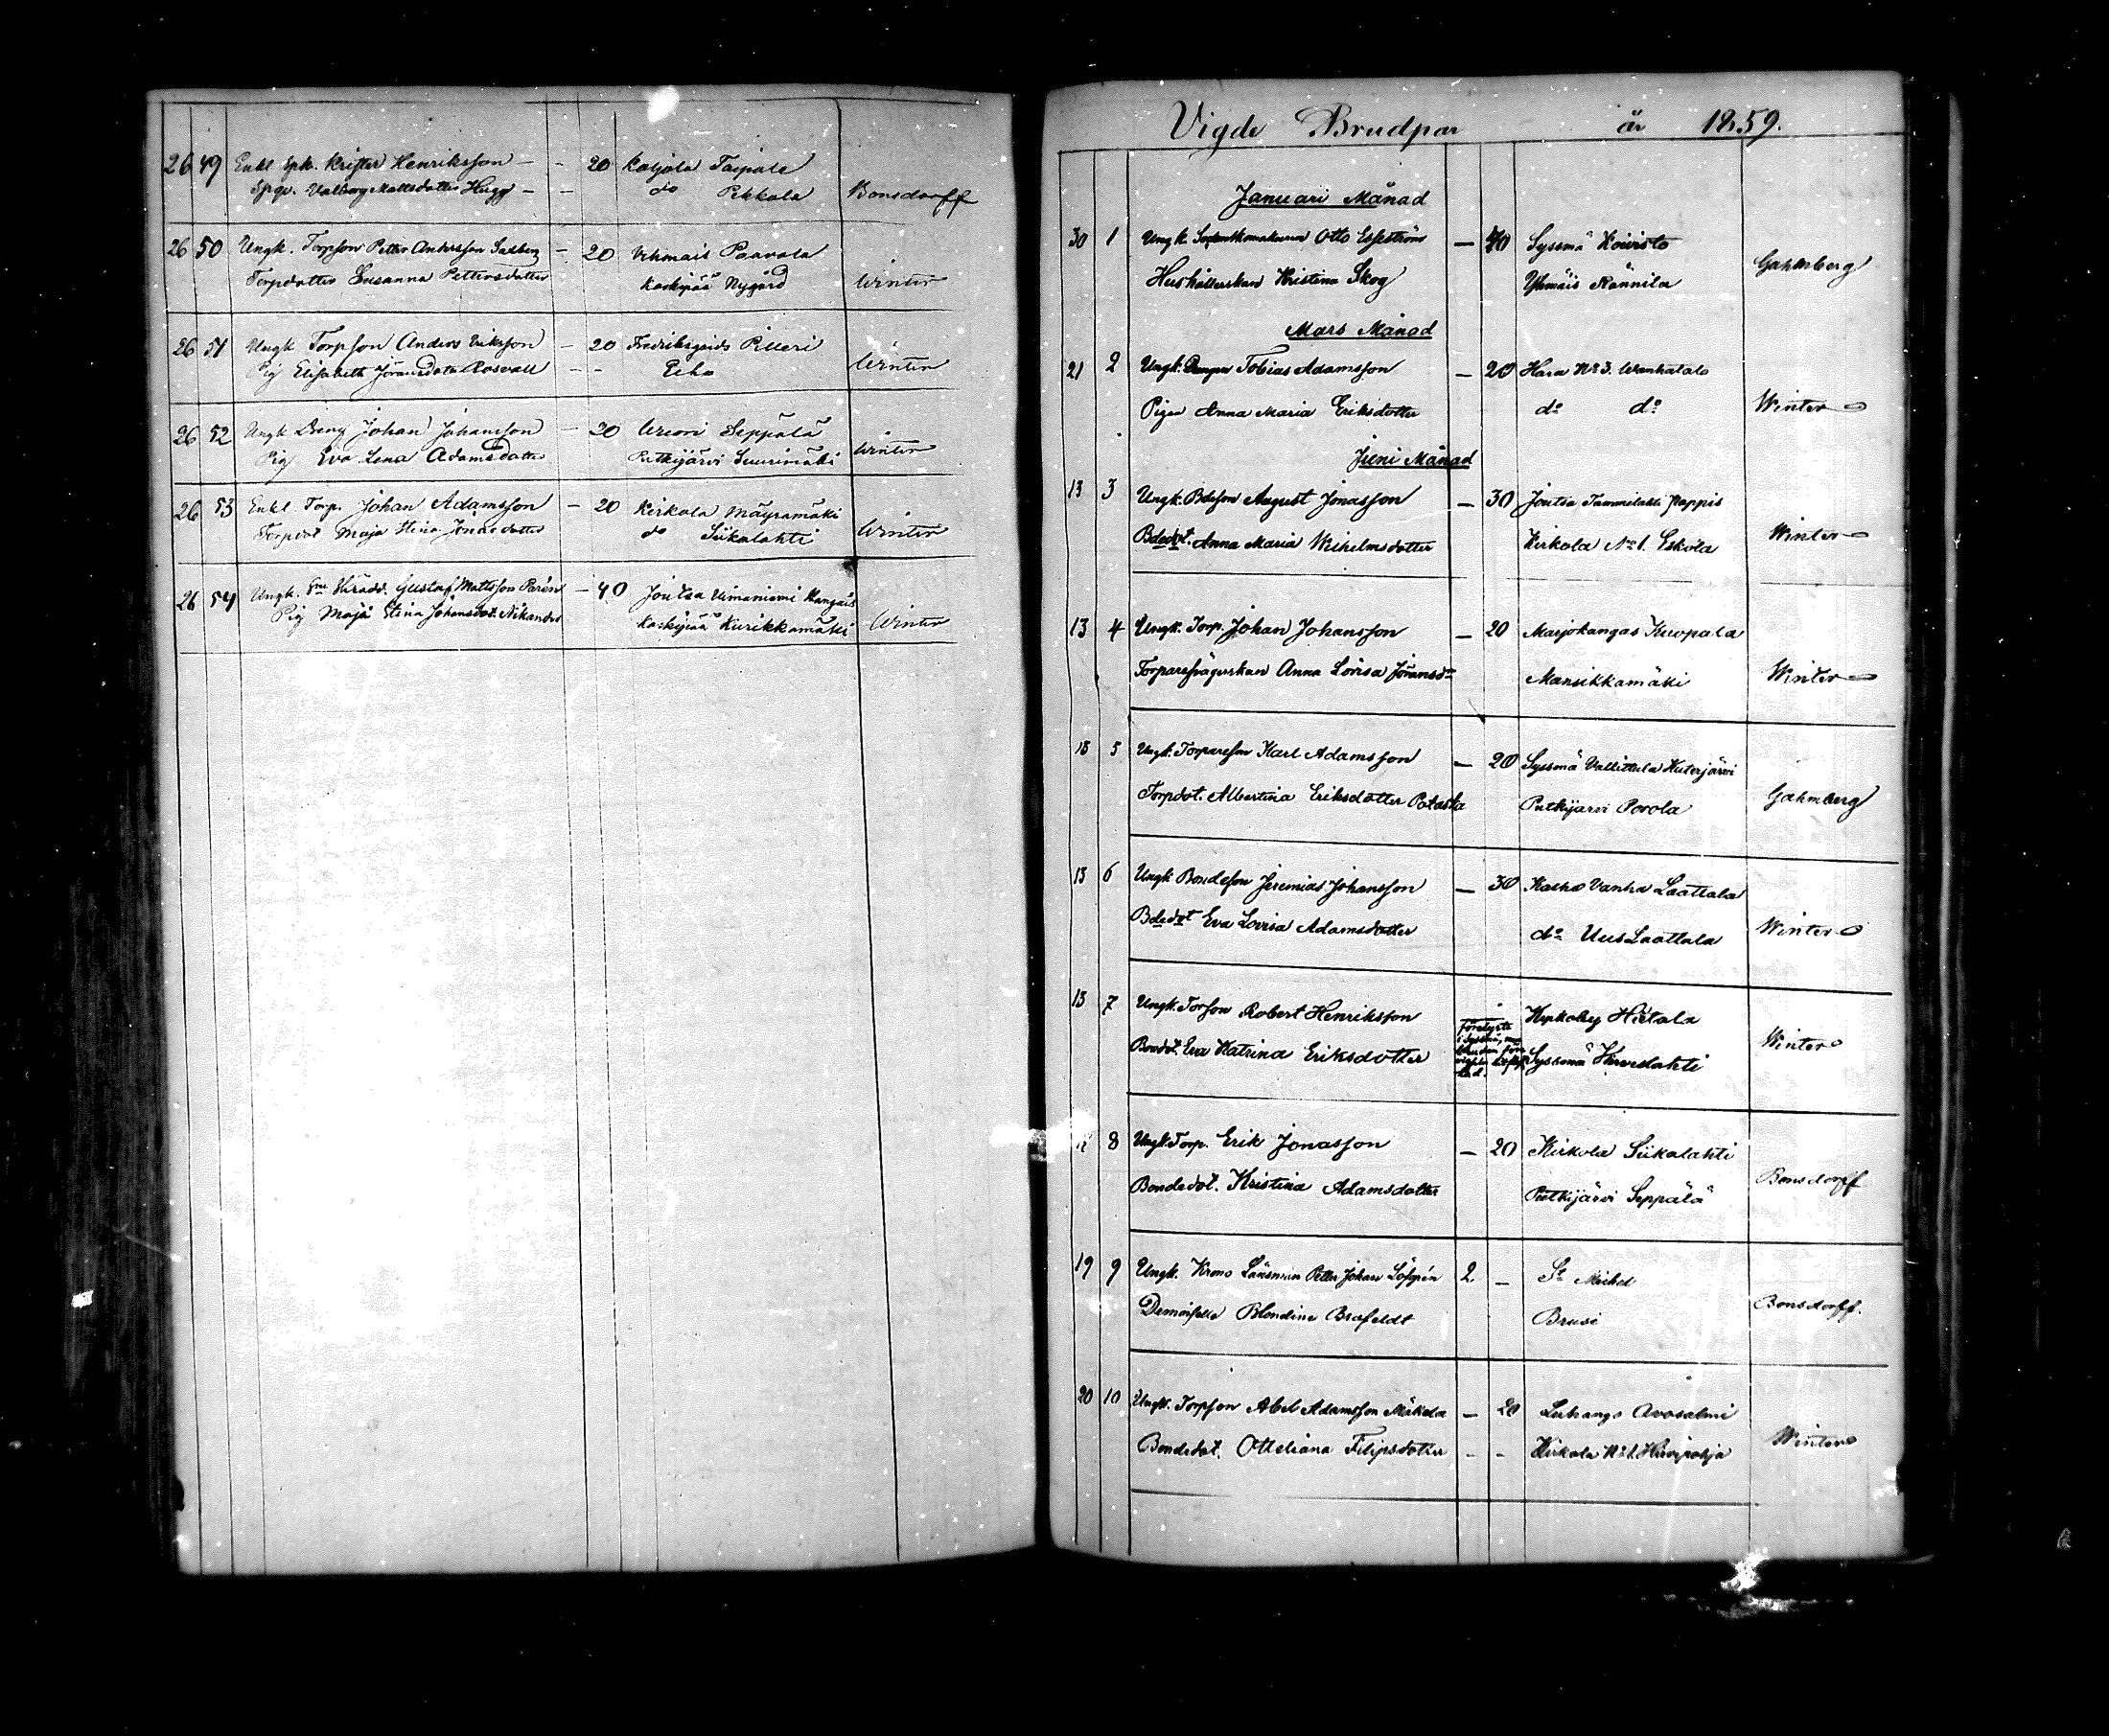 26 49 Enkl Spk. Krister Henriksson - - 20 Koljola Taipale
Spqv. Valborg Mattsdotter Hugg - - do Pekkola Bonsdorff
26 50 Ungk. Torpson Petter Andersson Salberg - 20 Vehmais Paavola
Torpdotter Susanna Pettersdotter Koskipää Nygård Winter
26 51 Ungk Torpson Anders Eriksson - 20 Fredriksgårds Pilleri
Pig Elisabeth Jöransdotter Rosvall - - Winter
26 52 Ungk Dreng Johan Johansson - 20 Seppälä
Pig Eva Lena Adamsdotter Putkijärvi Suurimäki Winter
26 53 Enkl Torp. Johan Adamsson - 20 Kirkola Mäyrämäki
Torpdot Maja Stina Jonaedotter do Siikalahti Winter
26 54 Ungk. Gustaf Mattsson Parén - 40 Joutsa Uimaniemi Kangais
Pig Maja Stina Johansdot. Nikander Koskipää Kurikkamäki Winter
Vigde Brudpar år 1859.
Januari Månad
30 1 Ungk. Otto Esseström - 40 Sysmä Koivisto
Hushållerskan Kristina Skog Ylimäis Rännilä Gahmberg
Mars Månad
21 2 Ungk. Drengen Tobias Adamsson - 20 Hara No 3. Wanhatalo
Pigan Anna Maria Eriksdotter do do Winter
Juni Månad
13 3 Ungk. Bdeson August Jonasson - 30 Joutsa Tammilahti Pappis
Bdedot. Anna Maria Wilhelmsdotter Kirkola No 1. Eskola Winter
13 4 Ungk. Torp. Johan Johansson - 20 Marjokangas Kuopala
Torparesvägerskan Anna Lovisa Jöransdr Mansikkamäki Winter
13 5 Ungk. Torpareson Karl Adamsson - 20 Syssmä Vallittula Huterjärvi
Torpdot. Albertina Eriksdotter Potaska Putkijärvi Porola Gahmberg
13 6 Ungk Bondeson Jeremias Johansson - 30 Kalho Vanha Laattala
Bdedot Eva Lovisa Adamsdotter do Uus Laattala Winter
13 7 Ungk. Torson Robert Henriksson Kyrkoby Hietala
Bondot. Eva Katrina Eriksdotter Syssmä Hirveslahti Winter
8 Ungk. Torp. Erik Jonasson - 20 Kirkola Siikalahti
Bondedot. Kristina Adamsdotter Putkijärvi Seppälä Bonsdorff
19 9 Ungk. Krono Länsman Petter Johan Löfgrén 2 - St Michel
Demoiselle Blondine Brofeldt Brusi Bonsdorff.
20 10 Ungk. Torpson Abel Adamsson Mäkelä - 20 Luhango Avosalmi
Bondedot. Otteliana Filipsdotter - - Kirkola No 1. Hirvipohja Winter